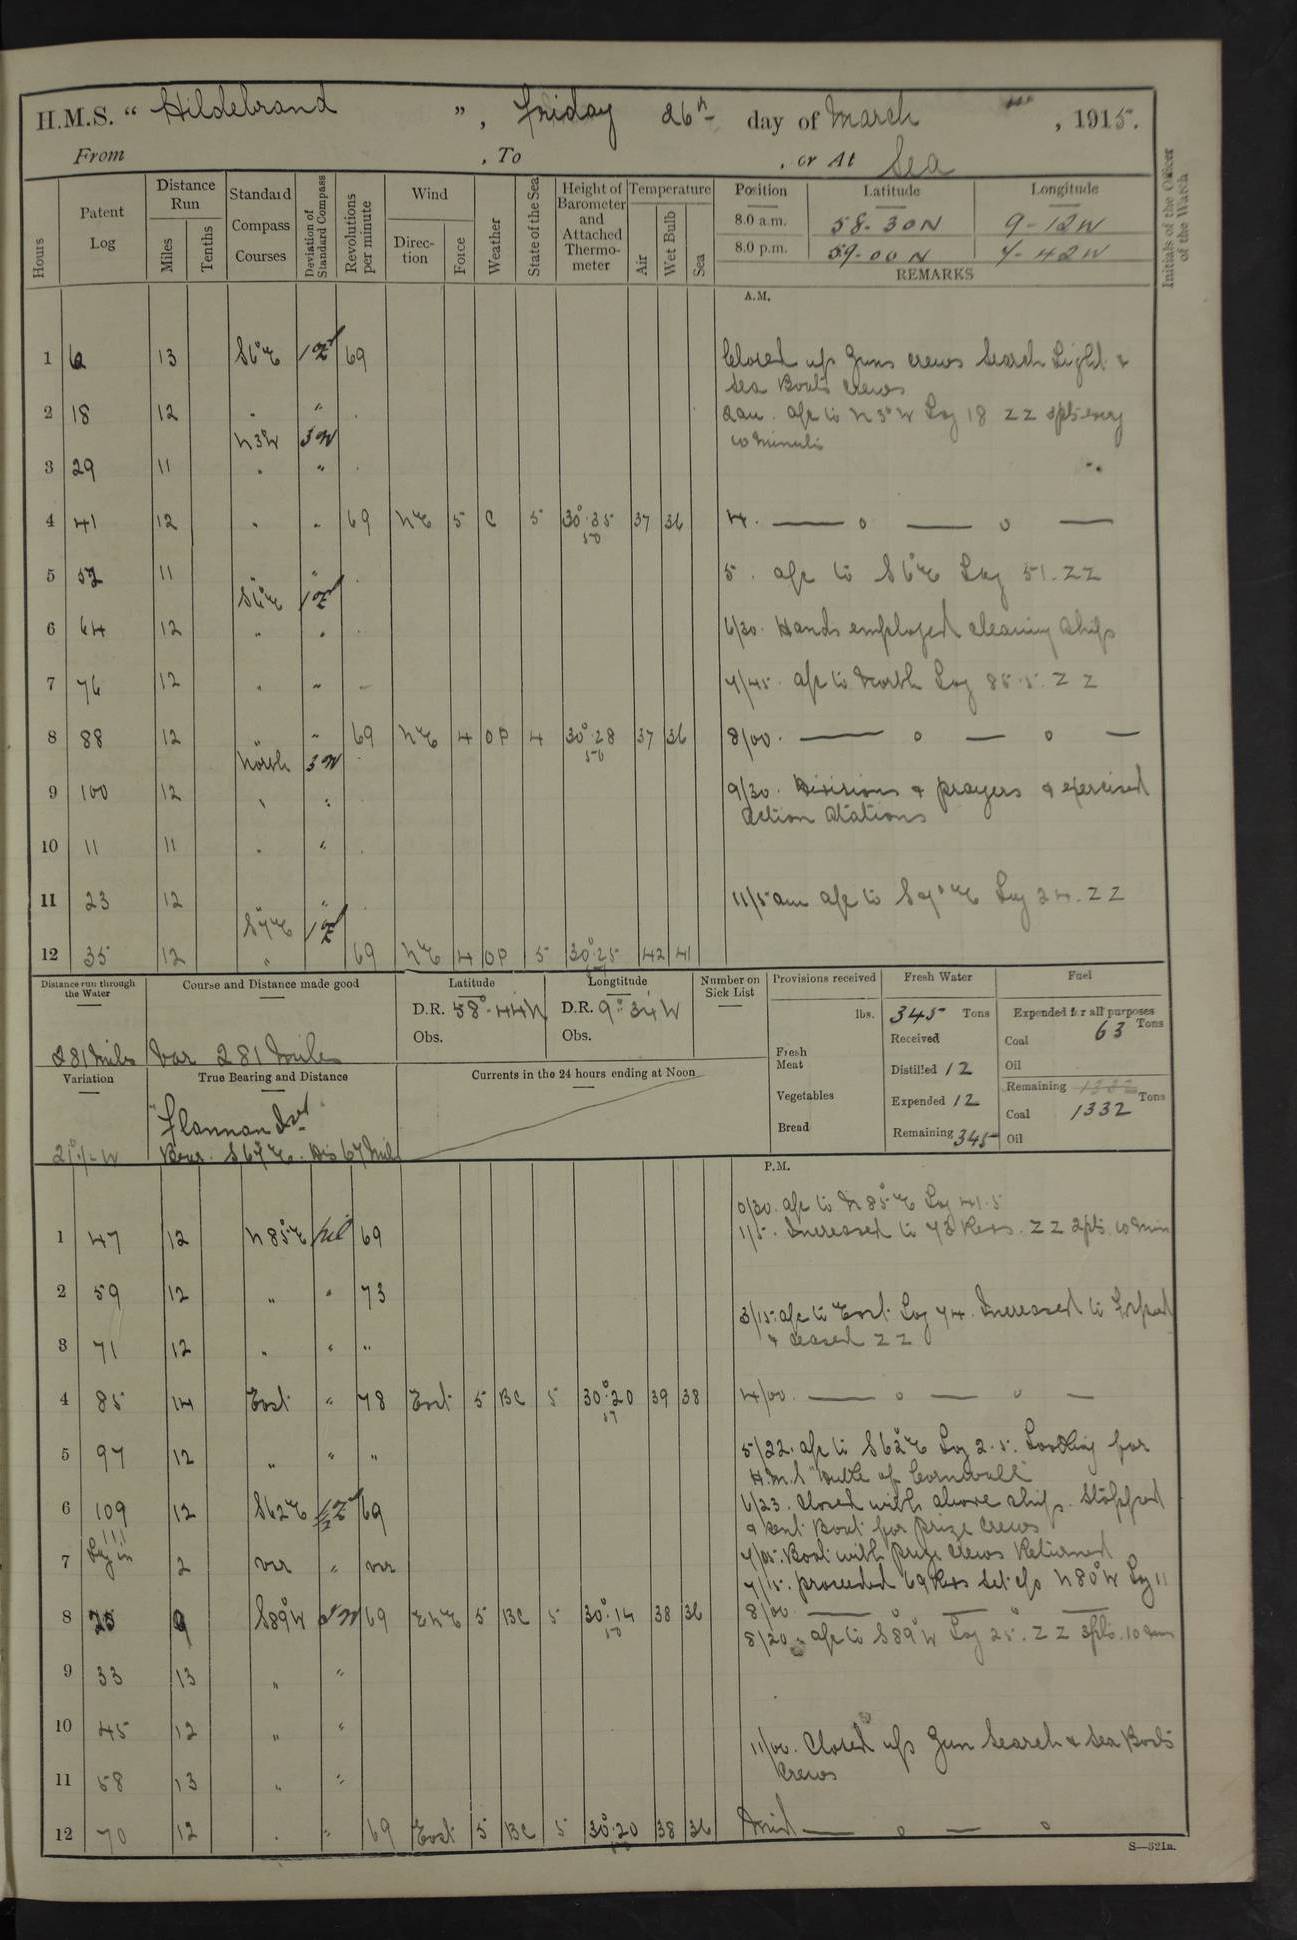 H.M.S. " Hildebrand ", Friday 26th day of March, 1915.
From , To , or At Sea
Hours
Patent Log
Distance Run
Miles
Tenths
Standard Compass Courses
Deviation of Standard Compass
Revolutions per minute
Wind
Direction
Force
Weather
State of the Sea
Height of Barometer and Attached Thermometer
Temperature
Air
Wet Bulb
Sea
Position Latitude Longitude
8.0 a.m. 58-30N 9-12W
8.0 p.m. 59-00N 7-42W
REMARKS
Initials of the Officer of the Watch
A.M.
1 6 13 S6°E 1E 69 Closed up Guns crews Search Light &
Sea Boats crews
2 18 12 " " 2am. a/c to N3°W Log 18 ZZ 2pts every
N3W 3W 10 minutes
3 29 11 " "
4 41 12 " " 69 NE 5 C 5 30.35 37 36 4.
50
5 52 11 " " 5. a/c to S6°E Log 51. ZZ
S6°E 1E
6 64 12 " " 6/30. Hands employed cleaning Ship
7 76 12 " " 7/45. a/c to North Log 85.5. ZZ
8 88 12 " " 69 NE 4 OP 4 30.28 37 36 8/00.
50
North 3W
9 100 12 " " 9/30. Divisions & prayers & exercised
action Stations
10 11 11 " "
11 23 12 " 11/5am a/c to S7°E Log 24. ZZ
S7°E 1E
12 35 12 " 69 NE 4 OP 5 30.25 42 41
Distance run through the Water
281 Miles
Course and Distance made good
Var 281 Miles
Latitude
D.R. 58°.44'N
Obs.
Longtitude
D.R. 9°.34'W
Obs.
Number on Sick List
Provisions received
lbs.
Fresh Meat
Vegetables
Bread
Fresh Water
345 Tons
Received
Distilled 12
Expended 12
Remaining 345
Fuel
Expended for all purposes
Coal 63 Tons
Oil
Remaining 1332 Tons
Coal 1332
Oil
Variation
True Bearing and Distance
"Flannan Isd"
Bears. S67°E. Dis 67 Mils
Currents in the 24 hours ending at Noon
P.M.
0/30. a/c to N85°E Log 41.5
1 47 12 N85°E nil 69 1/5. Increased to 73 Revs. ZZ 2pts 10 min
2 59 12 " " 73
3/15. a/c to East Log 74. Increased to
& ceased ZZ
3 71 12 " " "
4 85 14 East " 78 East 5 BC 5 30.20 39 38 4/00.
57
5 97 12 " " " 5/22. a/c to S62°E Log 2.5. Looking for
H.M.S "Duke of Cornwall"
6 109 12 S62E 69 6/23. Closed with above ship. Stopped
& sent Boat for prize crews
111
Log in
7 2 var " var 7/05. Boat with prize crews Returned
7/15. proceeded 69 Revs Set c/o N80°W Log 11
8 25 9 S89°W 2W 69 ENE 5 BC 5 30.14 38 36 8/00
50
8/20. a/c to S89°W Log 25. ZZ 3pts. 10 mn
9 33 13 " "
10 45 12 " "
11/00. Closed up Gun Search & Sea Boats
Crews
11 58 13 " "
12 70 12 " " 69 East 5 BC 5 30.20 38 36 Mid
50
S—321a.